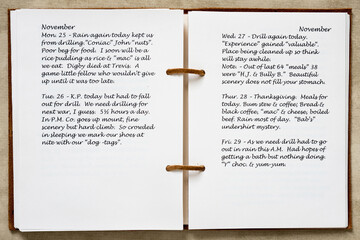 November
Mon. 25 - Rain again today kept us
from drilling. "Coniac" John "nuts".
Poor beg for food. I soon will be a
rice pudding as rice & "mac" is all
we eat. Digby died at Trevia. A
game little fellow who wouldn't give
up until it was too late.
Tue. 26 - K.P. today but had to fall
out for drill. We need drilling for
next war, I guess. 5½ hours a day.
In P.M. Co. goes up mount, fine
scenery but hard climb. So crowded
in sleeping we mark our shoes at
nite with our "dog -tags".
November
Wed. 27 - Drill again today.
"Experience" gained "valuable".
Place being cleaned up so think
will stay awhile.
Note. - Out of last 64 "meals" 38
were "H.J. & Bully B." Beautiful
scenery does not fill your stomach.
Thur. 28 - Thanksgiving. Meals for
today. Bum stew & coffee; Bread &
black coffee, "mac" & cheese, boiled
beef. Rain most of day. "Bab's"
undershirt mystery.
Fri. 29 - As we need drill had to go
out in rain this A.M. Had hopes of
getting a bath but nothing doing.
"Y" choc. & yum-yum.